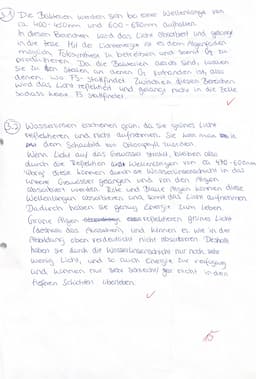 3.1 Die Bakterien werden sich bei einer Wellenlänge von
ca. 400-450nm und 600-680nm aufhalten.
In diesen Bereichen wird das Licht absorbiert und gelangt
in die Zelle. Mit der Lichtenergie ist es dem Algenfaden
möglich, Fotosynthese zu betreiben und somit O₂ zu
produzieren. Da die Bakterien aerob sind, werden
sie zu den Stellen, an denen O₂ vorhanden ist, also
denen, wo FS stattfindet. Zwischen diesen Bereichen
wird das Licht reflektiert und gelangt nicht in die Zelle
sodass keine FS stattfindet.
3.2 Wasserlinsen erscheinen grün, da sie grünes Licht
reflektieren und nicht aufnehmen. Sie
dem Schaubild
Wenn Licht auf das Gewässer strahlt, bleiben also
durch die Reflektion Wellenlängen von ca. 470-600nm
übrig, diese können durch die Wasserlinsenschicht in das
untere Gewässer gelangen, und von den Algen
absorbiert werden. Rote und Blaue Algen können diese
Wellenlängen absorbieren und somit das Licht aufnehmen.
Dadurch haben sie genug Energie zum Leben.
Grüne Algen reflektieren grünes Licht
(deshalb das Aussehen), und können es, wie in der
Abbildung oben verdeutlicht nicht absorbieren. Deshalb
haben sie durch die Wasserlinsenschicht nur noch sehr
wenig Licht, und so auch Energie zur Verfügung
und können nur sehr schlecht/gar nicht in den
tieferen Schichten überleben.
15